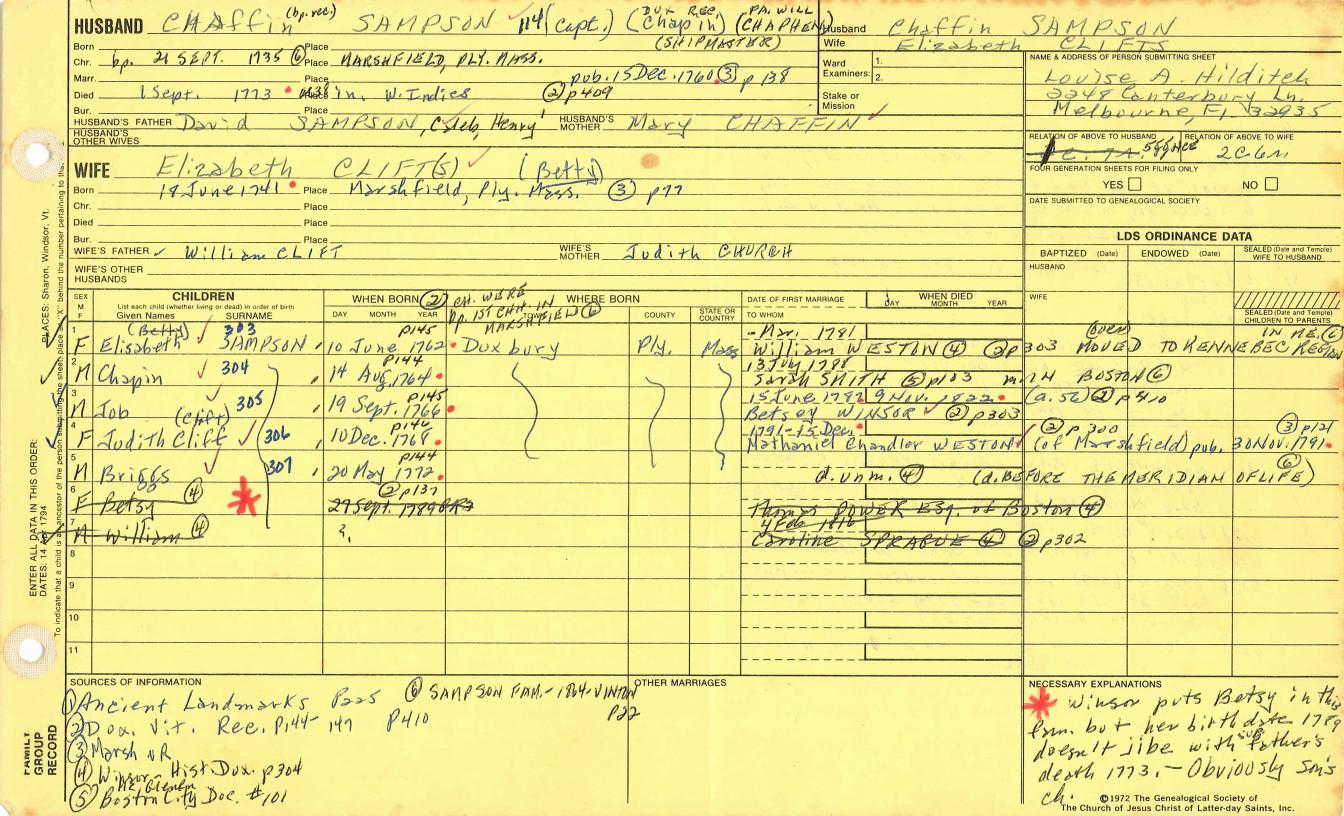 HUSBAND CHAFFin (bp. rec.) SAMPSON 114 (Capt.) (DUX REC. Chapin) (PA. WILL CHAPHEN)
(SHIPMASTER)
Born Place
Chr. bp. 21 SEPT. 1735 ⑥ Place MARSHFIELD, PLY. MASS.
Marr. Place pub. 15 Dec. 1760 ③ p 138
Died 1 Sept. 1773 Place in W. Indies ② p409
Bur. Place
HUSBAND'S FATHER David SAMPSON, Caleb, Henry HUSBAND'S MOTHER Mary CHAFFIN
HUSBAND'S OTHER WIVES
WIFE Elizabeth CLIFT(S) (Betty)
Born 18 June 1741 Place Marshfield, Ply. Mass. ③ p77
Chr. Place
Died Place
Bur. Place
WIFE'S FATHER William CLIFT WIFE'S MOTHER Judith CHURCH
WIFE'S OTHER HUSBANDS
Husband Chaffin SAMPSON
Wife Elizabeth CLIFTS
Ward Examiners: 1. 2.
Stake or Mission
NAME & ADDRESS OF PERSON SUBMITTING SHEET
Louise A. Hilditch
2248 Canterbury Ln.
Melbourne, Fl. 32935
RELATION OF ABOVE TO HUSBAND RELATION OF ABOVE TO WIFE
2C6R
FOUR GENERATION SHEETS FOR FILING ONLY
YES NO
DATE SUBMITTED TO GENEALOGICAL SOCIETY
LDS ORDINANCE DATA
BAPTIZED (Date) ENDOWED (Date) SEALED (Date and Temple) WIFE TO HUSBAND
HUSBAND
WIFE
SEALED (Date and Temple) CHILDREN TO PARENTS
SEX M F CHILDREN List each child (whether living or dead) in order of birth Given Names SURNAME
WHEN BORN ② DAY MONTH YEAR
CH. WERE bp. 1ST CH. IN MARSHFIELD ⑥
WHERE BORN TOWN COUNTY STATE OR COUNTRY
DATE OF FIRST MARRIAGE TO WHOM
WHEN DIED DAY MONTH YEAR
1 F (Betty) Elisabeth SAMPSON 303 10 June 1762 p145 Duxbury Ply. Mass - Mar. 1781 William WESTON ④ ② p303 (over) MOVED TO KENNEBEC REGION IN ME. ⑥
2 M Chapin 304 14 Aug. 1764 p144 13 July 1788 Sarah SMITH ⑤ p183 m. IN BOSTON ⑥
3 M Job 305 19 Sept. 1766 p145 15 June 1787 Betsey WINSOR ② p303 9 Nov. 1822 (a. 56) ② p410
4 F Judith Cliff (Clift) 306 10 Dec. 1768 p146 1791-15 Dec. Nathaniel Chandler WESTON ② p300 (of Marshfield) pub. 30 Nov. 1791 ③ p121
5 M Briggs 307 20 May 1772 p144 d. unm. ④ (d. BEFORE THE MERIDIAN OF LIFE) ⑥
6 F Betsy ④ 29 Sept. 1789 ② p137 Thomas POWER Esq. of Boston ④
7 M William ④ ?. 4 Feb 1816 Caroline SPRAGUE ④ ② p302
8
9
10
11
SOURCES OF INFORMATION
① Ancient Landmarks P225
② Dux. Vit. Rec. P.144-147 P410
③ Marsh VR
④ Winsor - Hist. Dux. p304
⑤ Boston City Doc. #101
⑥ SAMPSON FAM.-1864-VINTON P22
OTHER MARRIAGES
NECESSARY EXPLANATIONS
* Winsor puts Betsy in this
fam. but her birth date 1789
doesn't jibe with father's
death 1773. - Obviously son's
ch.
©1972 The Genealogical Society of
The Church of Jesus Christ of Latter-day Saints, Inc.
ENTER ALL DATA IN THIS ORDER:
DATES: 14 Apr 1794
PLACES: Sharon, Windsor, Vt.
To indicate that a child is an ancestor of the person submitting the sheet, place an "X" behind the number pertaining to
FAMILY GROUP RECORD